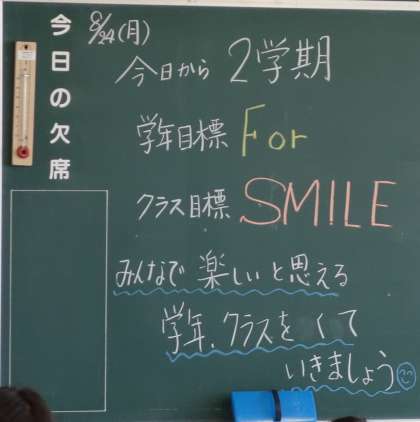 今日の欠席
8/24(月)
今日から 2学期
学年目標 For
クラス目標 SMILE
みんなで 楽しいと思える
学年、クラスをくて
いきましょう